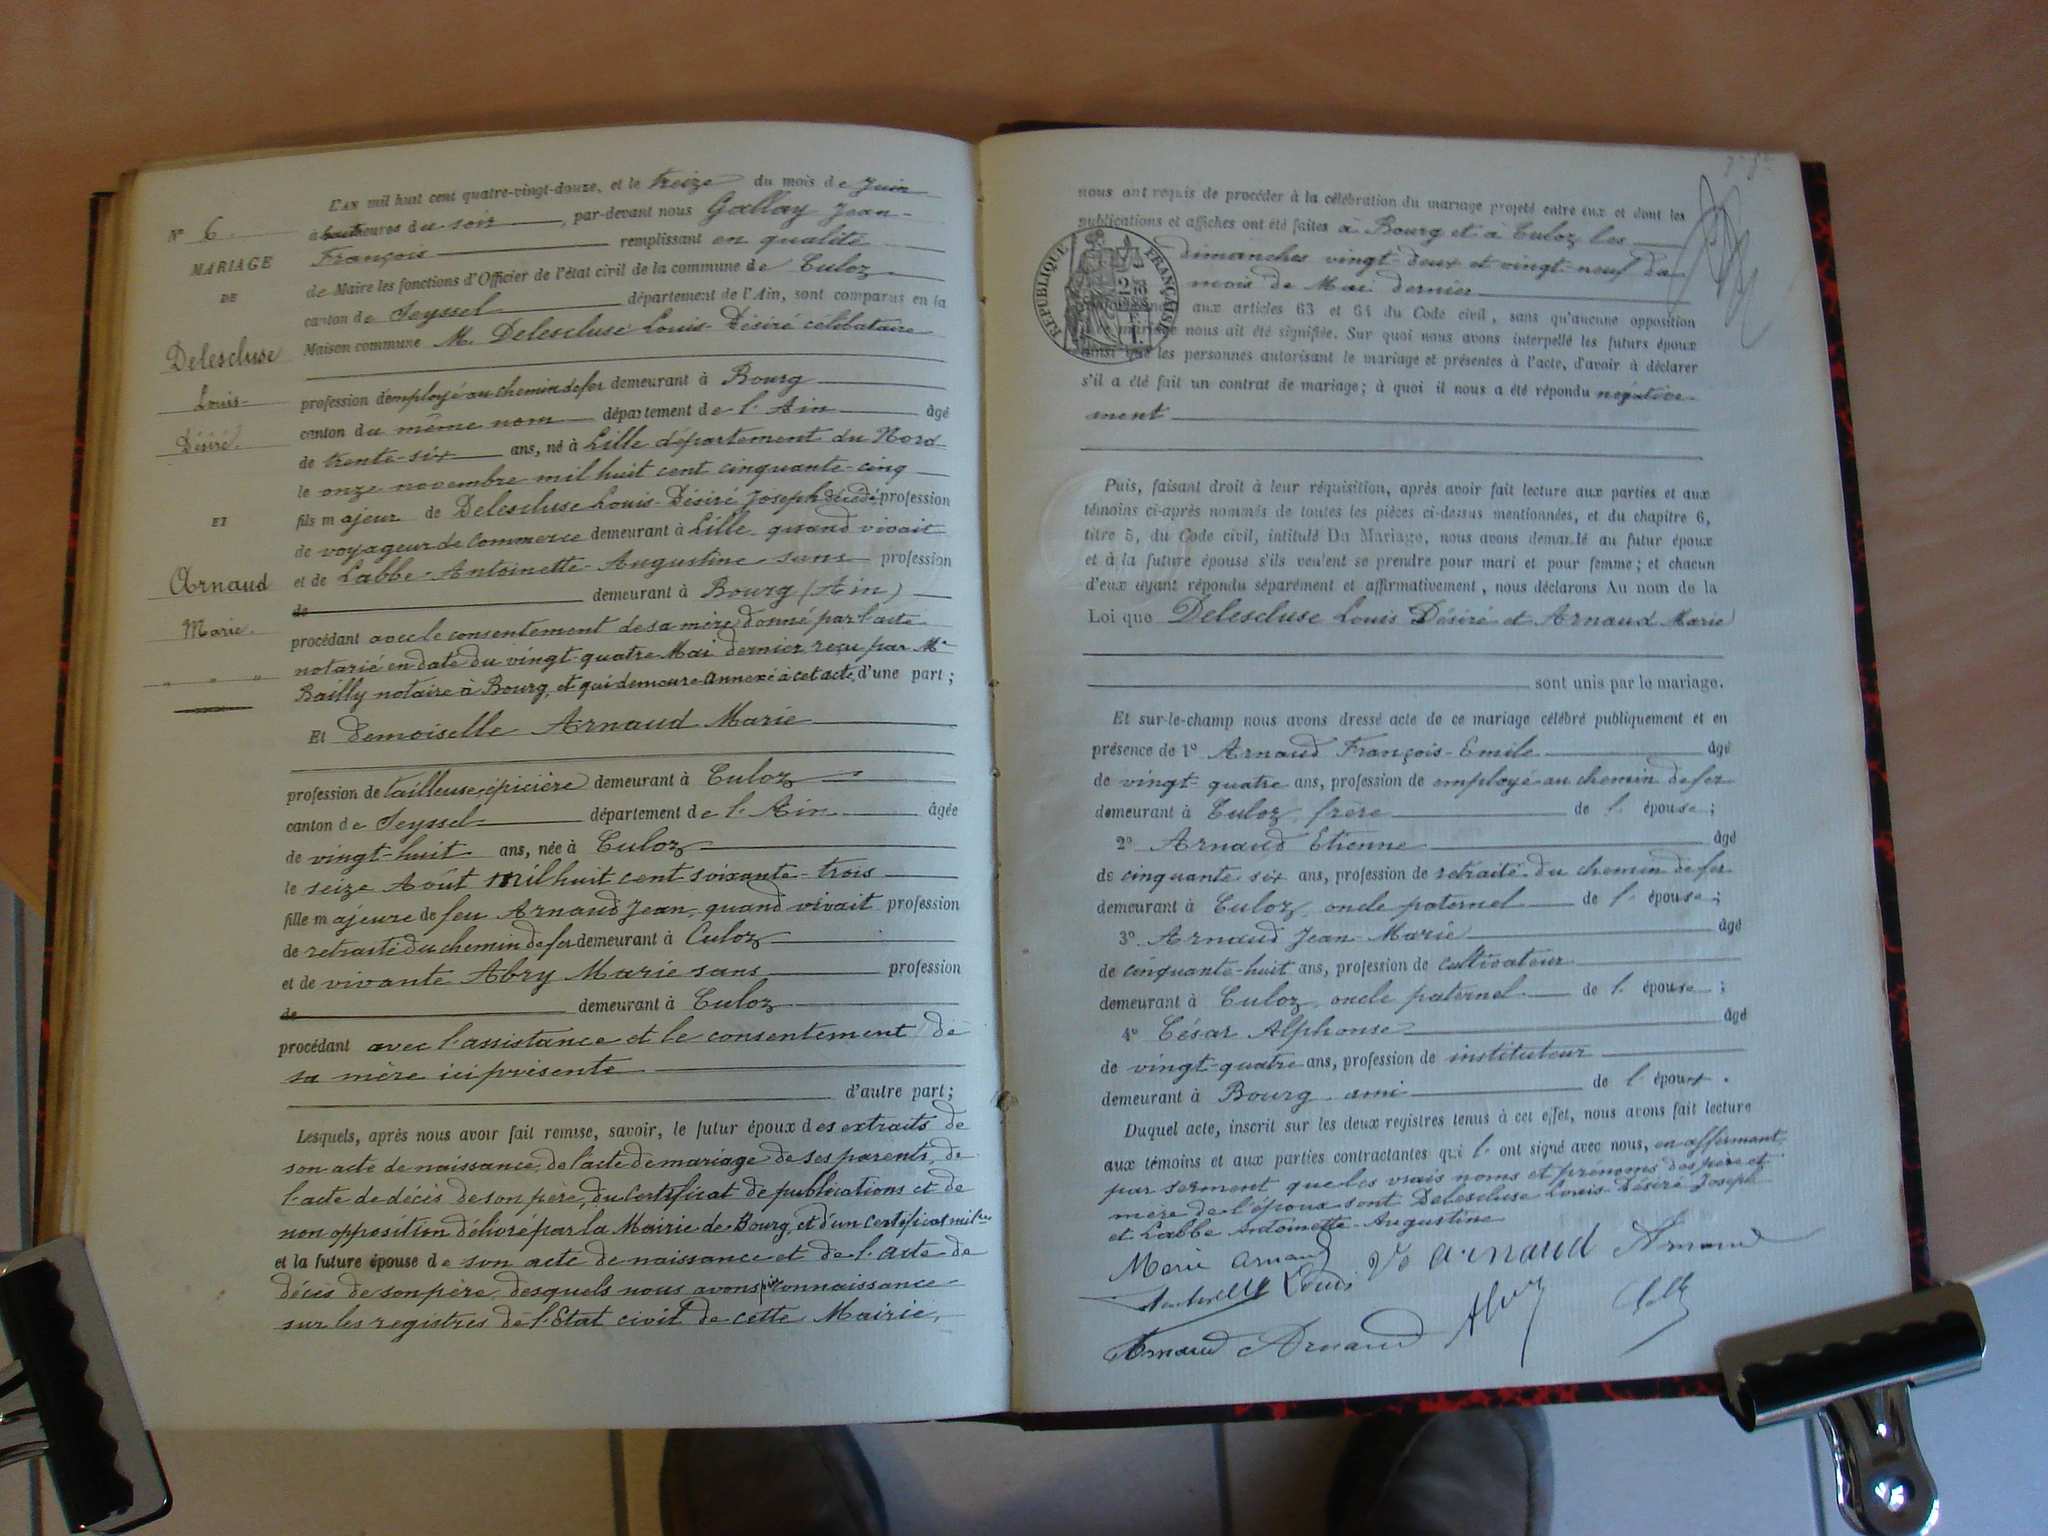 N° 6
MARIAGE
DE
Delescluse
Louis-
Désiré.
ET
Arnaud
Marie.
L'AN mil huit cent quatre-vingt-douze, et le treize du mois de Juin
à huit heures du soir, par-devant nous Gallay Jean-
François remplissant en qualité
de Maire les fonctions d'Officier de l'état civil de la commune de Culoz
canton de Seyssel département de l'Ain, sont comparus en la
Maison commune M. Delescluse Louis-Désiré célibataire
profession d'employé au chemin de fer demeurant à Bourg
canton du même nom département de l'Ain âgé
de trente-six ans, né à Lille département du Nord
le onze novembre mil huit cent cinquante-cinq
fils majeur de Delescluse Louis-Désiré Joseph décédé profession
de voyageur de commerce demeurant à Lille quand vivait
et de Labbe-Antoinette-Augustine sans profession
de demeurant à Bourg (Ain)
procédant avec le consentement de sa mère donné par l'acte
notarié en date du vingt-quatre Mai dernier reçu par Me
Bailly notaire à Bourg, et qui demeure annexé à cet acte, d'une part;
Et demoiselle Arnaud Marie
profession de tailleuse, épicière demeurant à Culoz
canton de Seyssel département de l'Ain âgée
de vingt-huit ans, née à Culoz
le seize Août mil huit cent soixante-trois
fille majeure de feu Arnaud Jean, quand vivait profession
de retraité du chemin de fer demeurant à Culoz
et de vivante Abry Marie sans profession
de demeurant à Culoz
procédant avec l'assistance et le consentement de
sa mère ici présente
d'autre part;
Lesquels, après nous avoir fait remise, savoir, le futur époux des extraits de
son acte de naissance, de l'acte de mariage de ses parents, de
l'acte de décès de son père, du certificat de publications et de
non opposition délivré par la Mairie de Bourg, et d'un certificat milre
et la future épouse de son acte de naissance et de l'acte de
décès de son père, desquels nous avons pris connaissance
sur les registres de l'Etat civil de cette Mairie,
nous ont requis de procéder à la célébration du mariage projeté entre eux et dont les
publications et affiches ont été faites à Bourg et à Culoz les
dimanches vingt-deux et vingt-neuf du
mois de Mai dernier
RÉPUBLIQUE FRANÇAISE
aux articles 63 et 64 du Code civil, sans qu'aucune opposition
mariage nous ait été signifiée. Sur quoi nous avons interpellé les futurs époux
ainsi que les personnes autorisant le mariage et présentes à l'acte, d'avoir à déclarer
s'il a été fait un contrat de mariage; à quoi il nous a été répondu négative-
ment
Puis, faisant droit à leur réquisition, après avoir fait lecture aux parties et aux
témoins ci-après nommés de toutes les pièces ci-dessus mentionnées, et du chapitre 6,
titre 5, du Code civil, intitulé Du Mariage, nous avons demandé au futur époux
et à la future épouse s'ils veulent se prendre pour mari et pour femme; et chacun
d'eux ayant répondu séparément et affirmativement, nous déclarons Au nom de la
Loi que Delescluse Louis Désiré et Arnaud Marie
sont unis par le mariage.
Et sur-le-champ nous avons dressé acte de ce mariage célébré publiquement et en
présence de 1° Arnaud François-Emile âgé
de vingt-quatre ans, profession de employé au chemin de fer
demeurant à Culoz, frère de l'épouse;
2° Arnaud Etienne âgé
de cinquante six ans, profession de retraité du chemin de fer
demeurant à Culoz, oncle paternel de l'épouse;
3° Arnaud Jean-Marie âgé
de cinquante-huit ans, profession de cultivateur
demeurant à Culoz, oncle paternel de l'épouse;
4° César Alphonse âgé
de vingt-quatre ans, profession de instituteur
demeurant à Bourg, ami de l'époux.
Duquel acte, inscrit sur les deux registres tenus à cet effet, nous avons fait lecture
aux témoins et aux parties contractantes qui l'ont signé avec nous, en affirmant
par serment que les vrais noms et prénoms des père et
mère de l'époux sont Delescluse Louis-Désiré Joseph
et Labbe Antoinette-Augustine
Marie Arnaud Ve Arnaud Arnaud
Louis
Arnaud Arnaud